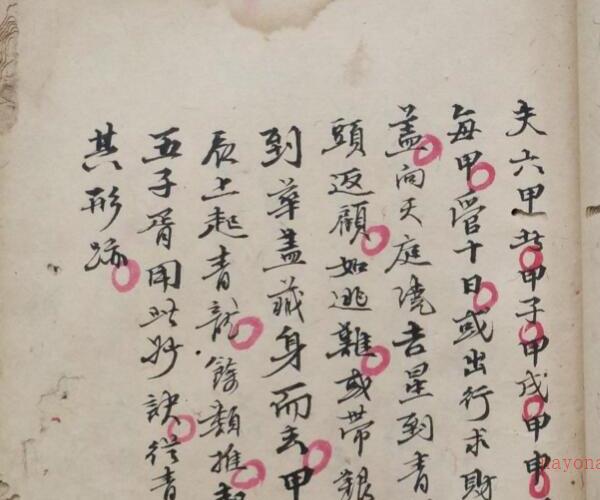 夫六甲者甲子甲戌甲申
每甲管十日或出行求財
蓋向天庭繞吉星到青
頭返顧如逃難或帶艱
到華蓋藏身而去甲
辰上起青龍餘類推
五子胥用此妙訣從青
其形跡